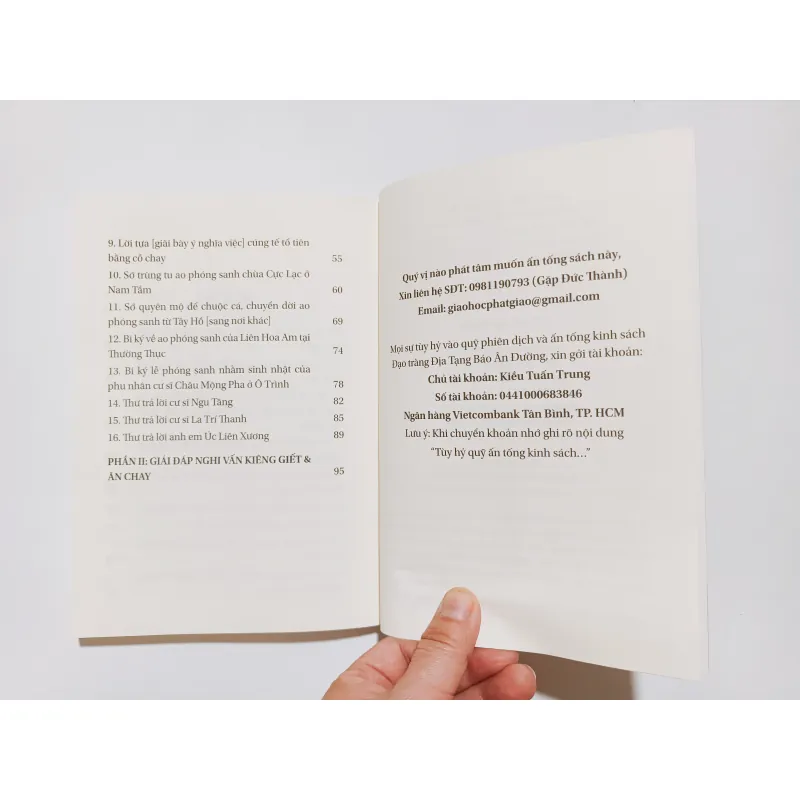 9. Lời tựa [giãi bày ý nghĩa việc] cúng tế tổ tiên
bằng cỗ chay 55
10. Sớ trùng tu ao phóng sanh chùa Cực Lạc ở
Nam Tầm 60
11. Sớ quyên mộ để chuộc cá, chuyển dời ao
phóng sanh từ Tây Hồ [sang nơi khác] 69
12. Bi ký về ao phóng sanh của Liên Hoa Am tại
Thường Thục 74
13. Bi ký lễ phóng sanh nhằm sinh nhật của
phu nhân cư sĩ Châu Mộng Pha ở Ô Trình 78
14. Thư trả lời cư sĩ Ngu Tăng 82
15. Thư trả lời cư sĩ La Trí Thanh 85
16. Thư trả lời anh em Úc Liên Xương 89
PHẦN II: GIẢI ĐÁP NGHI VẤN KIÊNG GIẾT &
ĂN CHAY 95
Quý vị nào phát tâm muốn ấn tống sách này,
Xin liên hệ SĐT: 0981190793 (Gặp Đức Thành)
Email: giaohocphatgiao@gmail.com
Mọi sự tùy hỷ vào quỹ phiên dịch và ấn tống kinh sách
Đạo tràng Địa Tạng Báo Ân Đường, xin gởi tài khoản:
Chủ tài khoản: Kiều Tuấn Trung
Số tài khoản: 0441000683846
Ngân hàng Vietcombank Tân Bình, TP. HCM
Lưu ý: Khi chuyển khoản nhớ ghi rõ nội dung
“Tùy hỷ quỹ ấn tống kinh sách...”